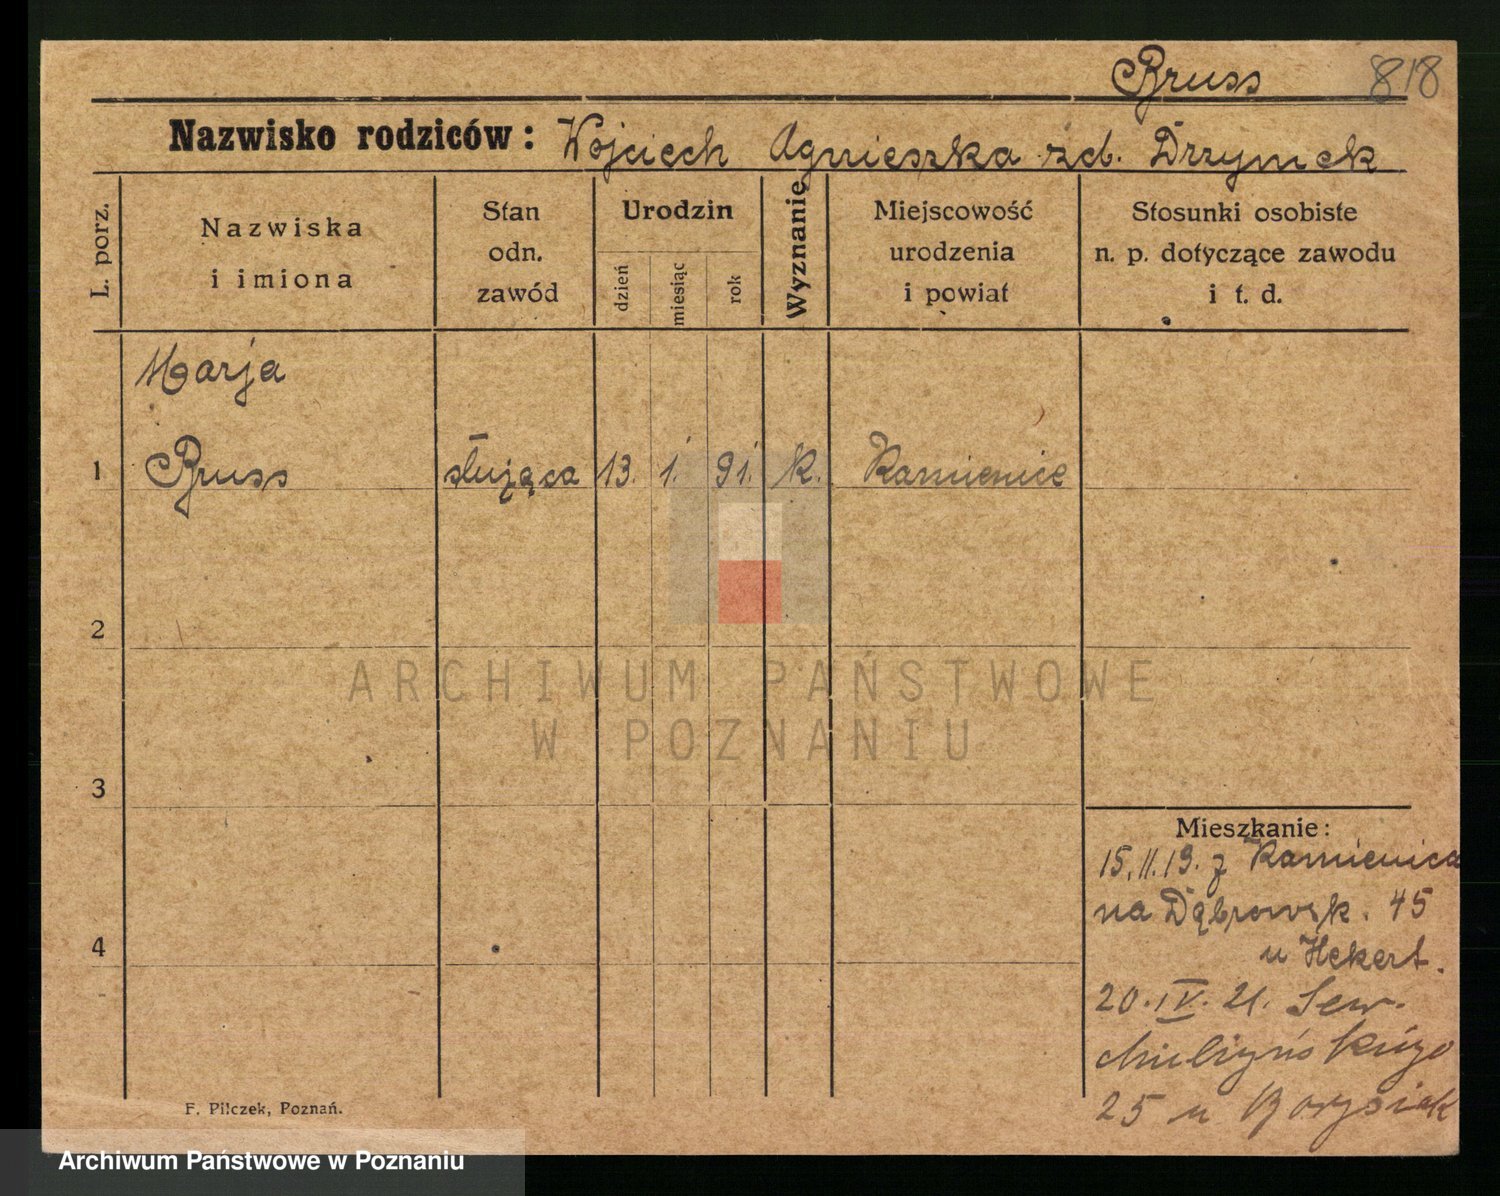 Bruss 818
Nazwisko rodziców: Wojciech Agnieszka zd. Drzymek
L. porz.
Nazwiska
i imiona
Stan
odn.
zawód
Urodzin
dzień
miesiąc
rok
Wyznanie
Miejscowość
urodzenia
i powiat
Stosunki osobiste
n. p. dotyczące zawodu
i t. d.
Marja
1 Bruss służąca 13. 1. 91. k. Kamienice
2
3
4
ARCHIWUM PAŃSTWOWE
W POZNANIU
Mieszkanie:
15.11.19. z Kamienica
na Dąbrowsk. 45
u Hekert.
20. IV. 21. Sew.
Mielżyńskiego
25 u Borysiak
F. Pilczek, Poznań.
Archiwum Państwowe w Poznaniu